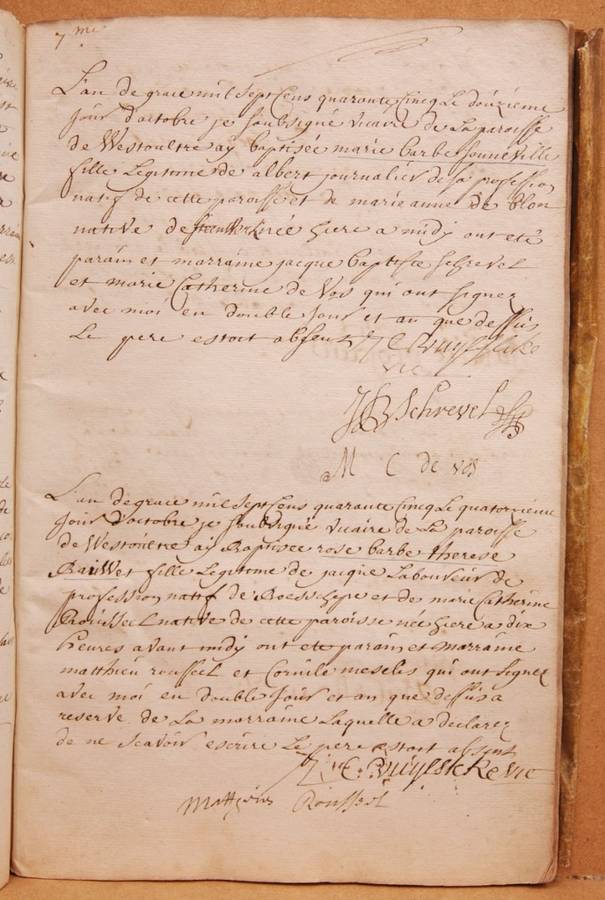 7 me
L'an de grace mil sept Cens quarante Cinq Le douzieme
jour d'octobre je soubsigné vicaire de La paroisse
de Westoultre ay baptisée marie barbe Sonneville
fille Legitime de albert journalier de sa profession
natif de cette paroisse et de marie anne de blon
native de née hiere a midy ont eté
parain et marraine jacque baptiste Schrevel
et marie Catherine de Vos qui ont signez
avec moi en double jour et an que dessus
Le pere estoit absent
vic
JB Schrevel
M C de vos
L'an de grace mil sept Cens quarante Cinq Le quatorzieme
jour d'octobre je soubsigné vicaire de La paroisse
de Westoultre ay Baptisee rose barbe therese
fille Legitime de jacque Laboureur de
profession natif de Boesschepe et de marie Catherine
Roussel native de cette paroisse née hiere a dix
heures avant midy ont eté parain et marraine
matthieu roussel et Cornile meselis qui ont signez
avec moi en double jour et an que dessus a
reserve de La marraine Laquelle a declarez
de ne scavoir escrire Le pere estoit absent
C. Ruyelsckè vic
Roussel